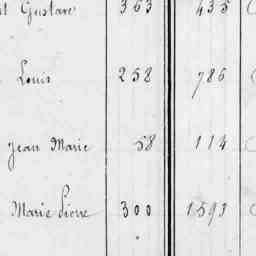 Gustave 363 435
Louis 258 786
Jean Marie 58 114
Marie Pierre 300 1593